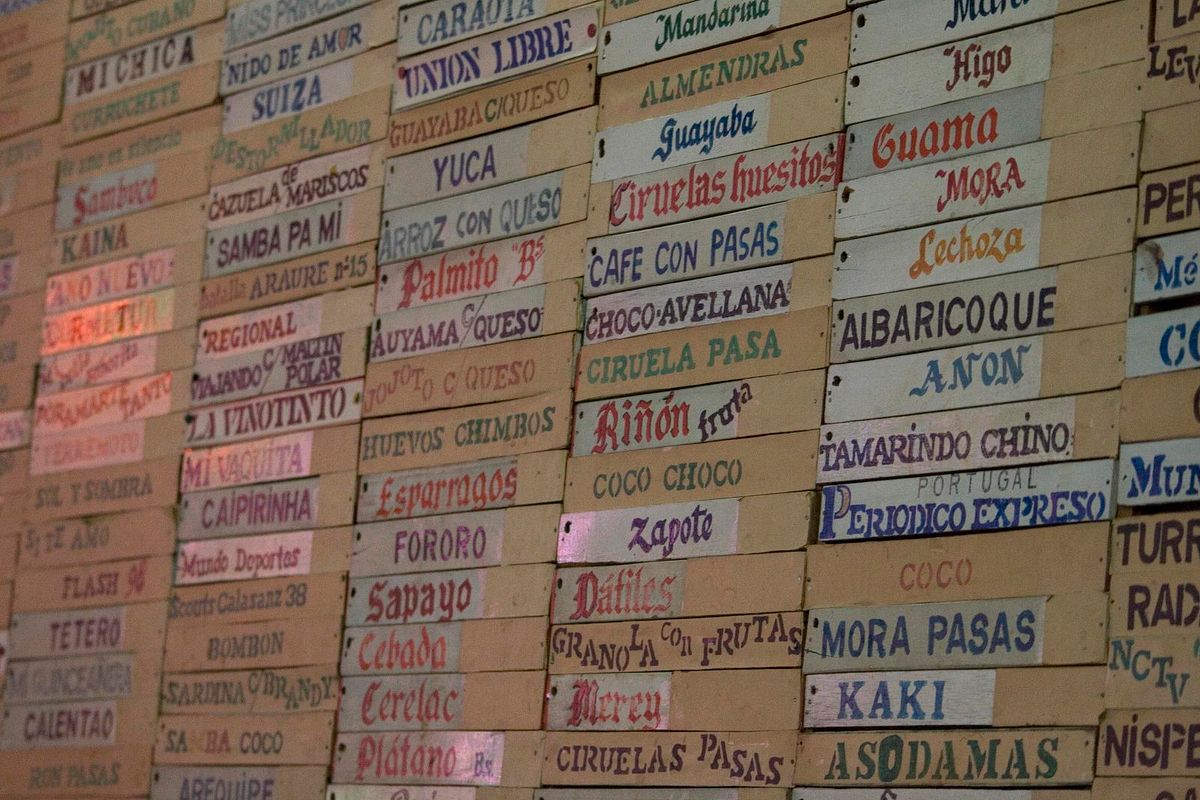 CUBANO
MICHICA
CURRUCHETE
Sambuco
KAINA
ANO NUEVO
TANTO
TERREMOTO
SOL Y SOMBRA
SI TE AMO
FLASH
TETERO
MI QUINCEANERA
CALENTAO
RON PASAS
MISS PRINCESS
NIDO DE AMOR
SUIZA
DESTORNILLADOR
CAZUELA de MARISCOS
SAMBA PA MI
batalla ARAURE nº15
REGIONAL
VIAJANDO C/ MALTIN POLAR
LA VINOTINTO
MI VAQUITA
CAIPIRINHA
Mundo Deportes
Scouts Calasanz 38
BOMBON
SARDINA C/BRANDY
SAMBA COCO
AREQUIPE
CARAOTA
UNION LIBRE
GUAYABA C/QUESO
YUCA
ARROZ CON QUESO
Palmito "Bs
AUYAMA C/QUESO
JOJOTO C/ QUESO
HUEVOS CHIMBOS
Esparragos
FORORO
Sapayo
Cebada
Cerelac
Plátano Bs
Mandarina
ALMENDRAS
Guayaba
Ciruelas huesitos
CAFE CON PASAS
CHOCO-AVELLANA
CIRUELA PASA
Riñón fruta
COCO CHOCO
Zapote
Dátiles
GRANOLA CON FRUTAS
Merey
CIRUELAS PASAS
Higo
Guama
MORA
Lechoza
ALBARICOQUE
ANON
TAMARINDO CHINO
PORTUGAL
PERIODICO EXPRESO
COCO
MORA PASAS
KAKI
ASODAMAS
LEV
PER
Mé
CO
MUN
TURR
RAD
NCTV
NISPE